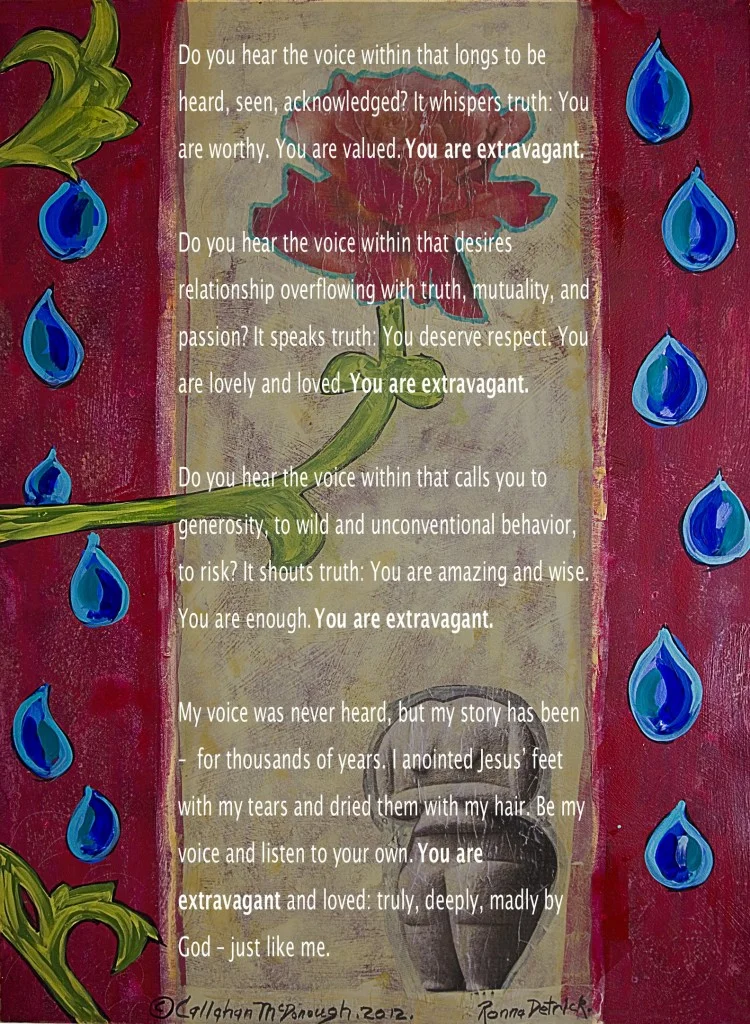 Do you hear the voice within that longs to be
heard, seen, acknowledged? It whispers truth: You
are worthy. You are valued. You are extravagant.
Do you hear the voice within that desires
relationship overflowing with truth, mutuality, and
passion? It speaks truth: You deserve respect. You
are lovely and loved. You are extravagant.
Do you hear the voice within that calls you to
generosity, to wild and unconventional behavior,
to risk? It shouts truth: You are amazing and wise.
You are enough. You are extravagant.
My voice was never heard, but my story has been
– for thousands of years. I anointed Jesus’ feet
with my tears and dried them with my hair. Be my
voice and listen to your own. You are
extravagant and loved: truly, deeply, madly by
God – just like me.
©Callahan McDonough. 2012. Ronna Detrick.